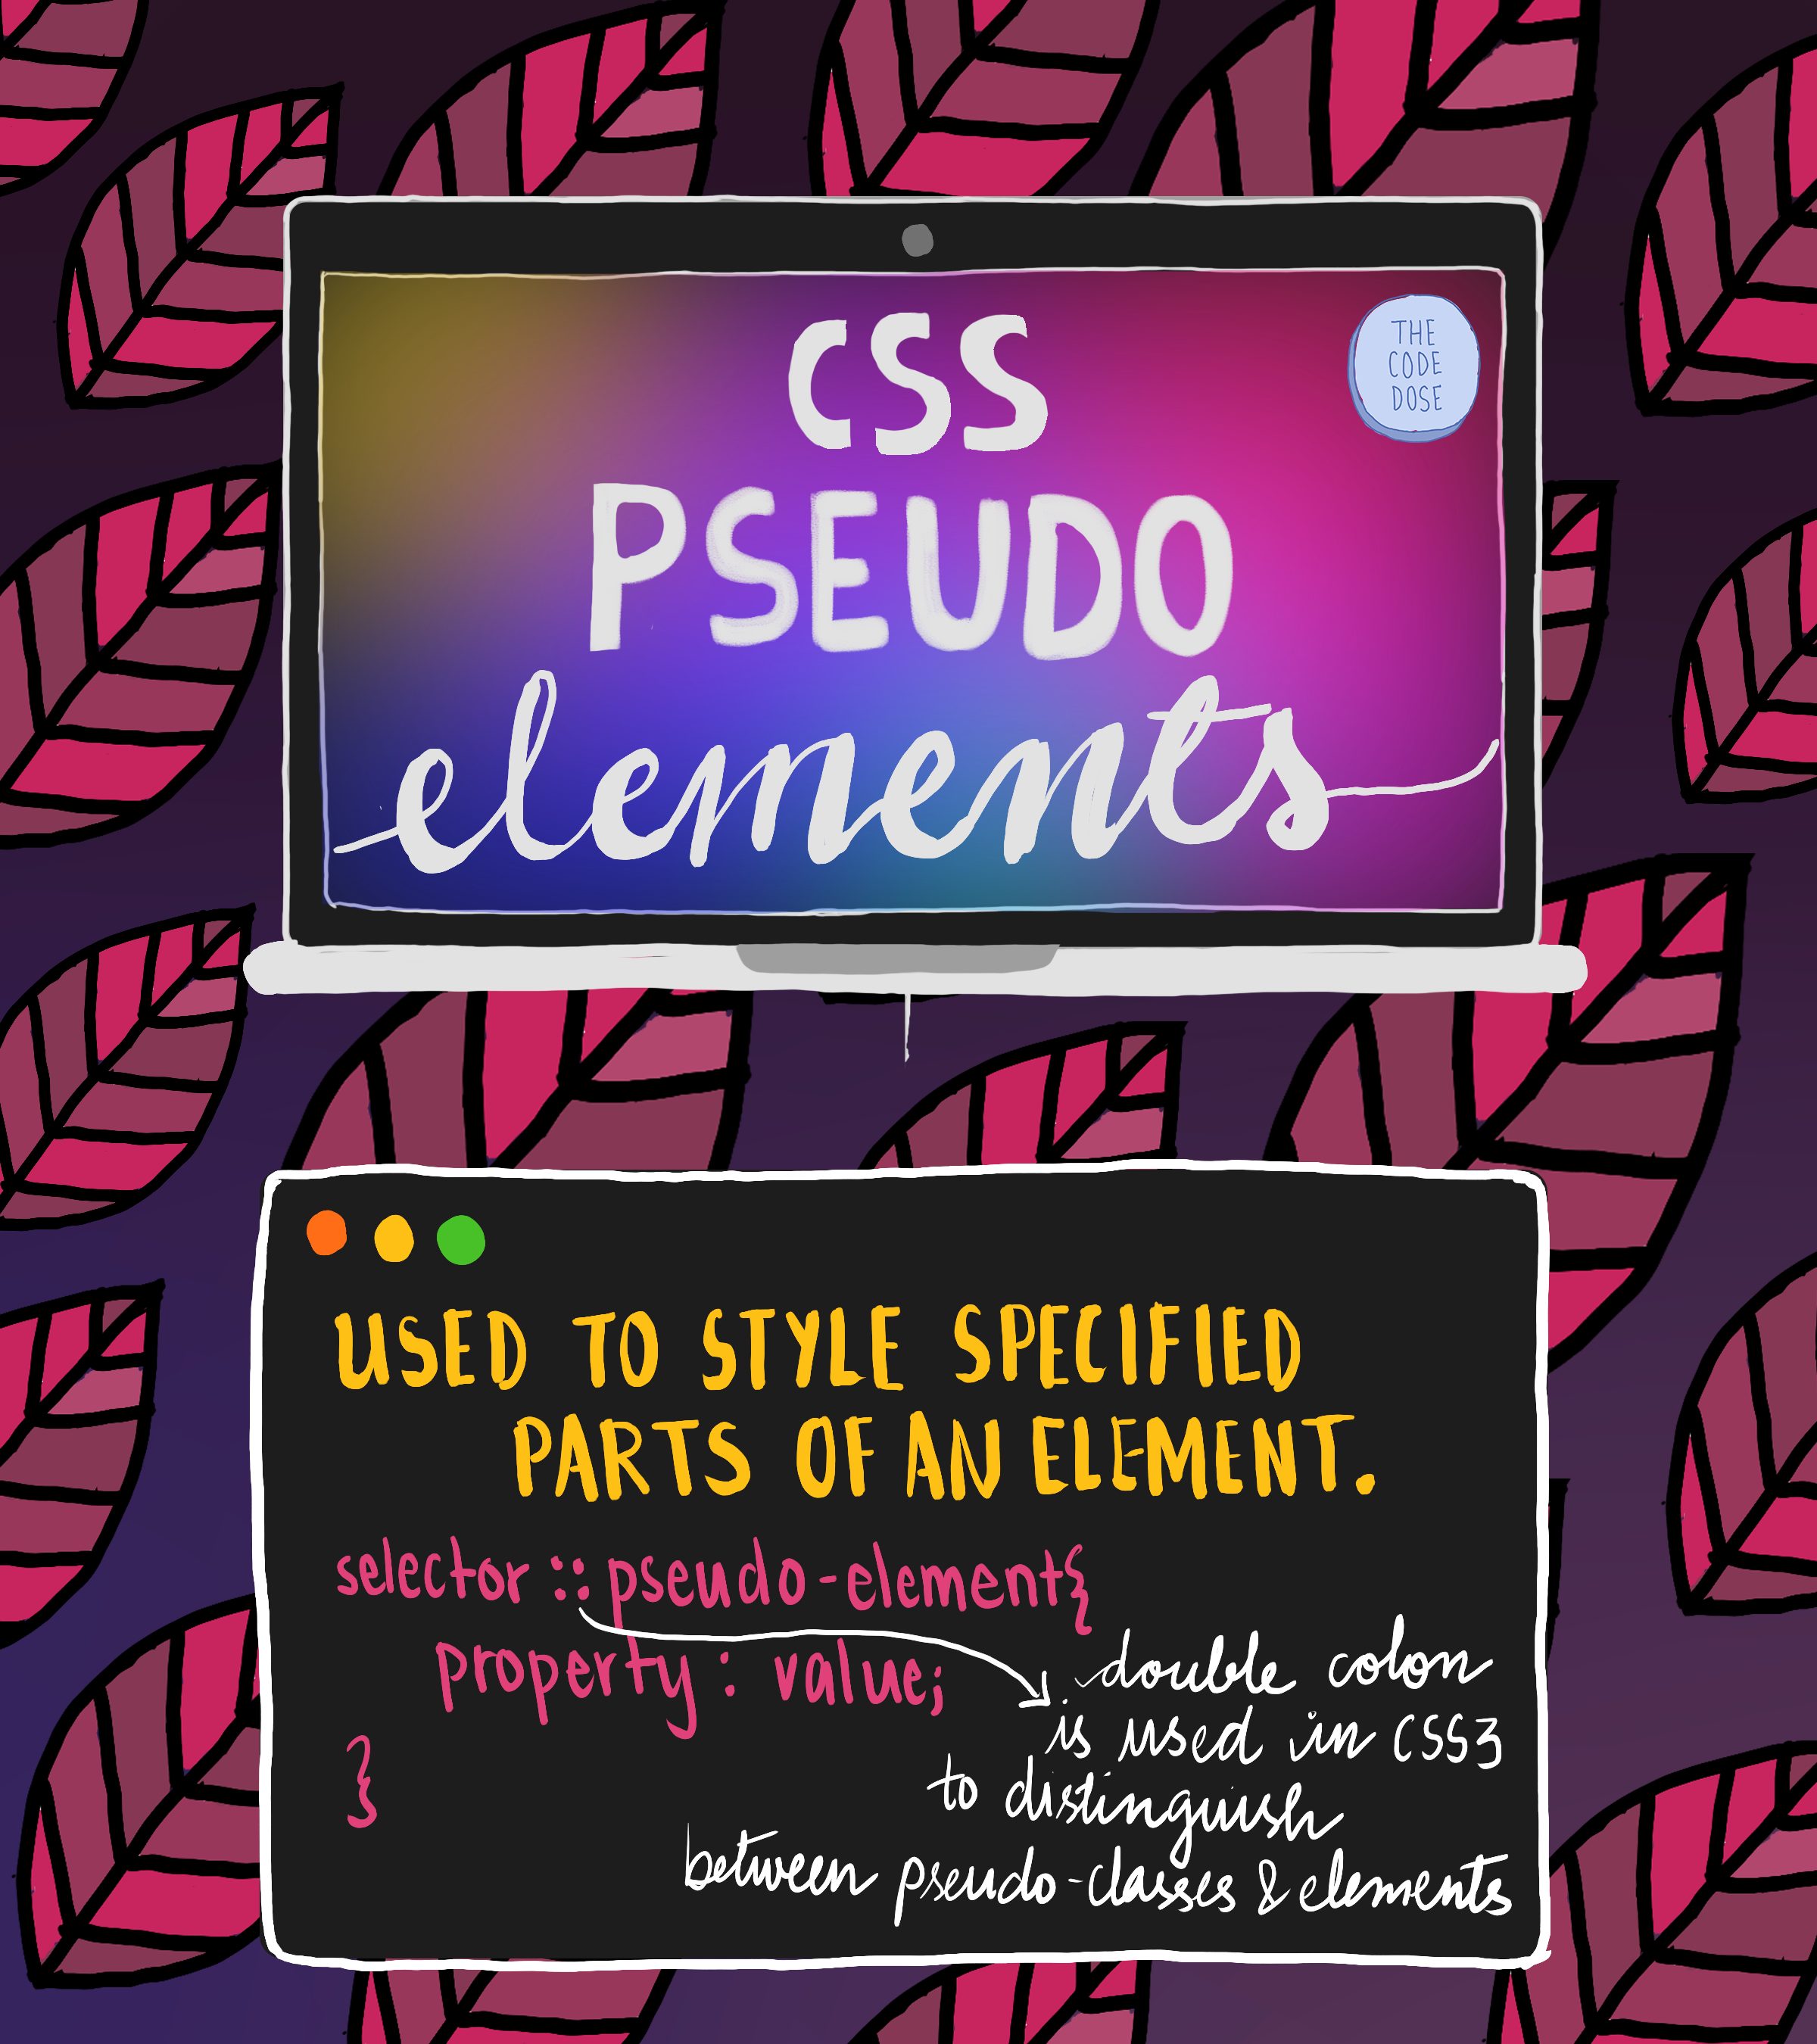 CSS
PSEUDO
elements
THE
CODE
DOSE
USED TO STYLE SPECIFIED
PARTS OF AN ELEMENT.
selector::pseudo-element{
property: value;
}
double colon
is used in CSS3
to distinguish
between pseudo-classes & elements